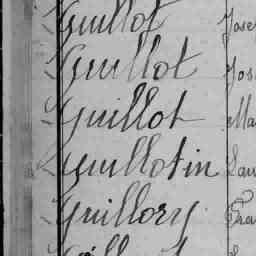 Guillot Jose
Guillot Jos
Guillot Ma
Guillotin Lau
Guillory Fra